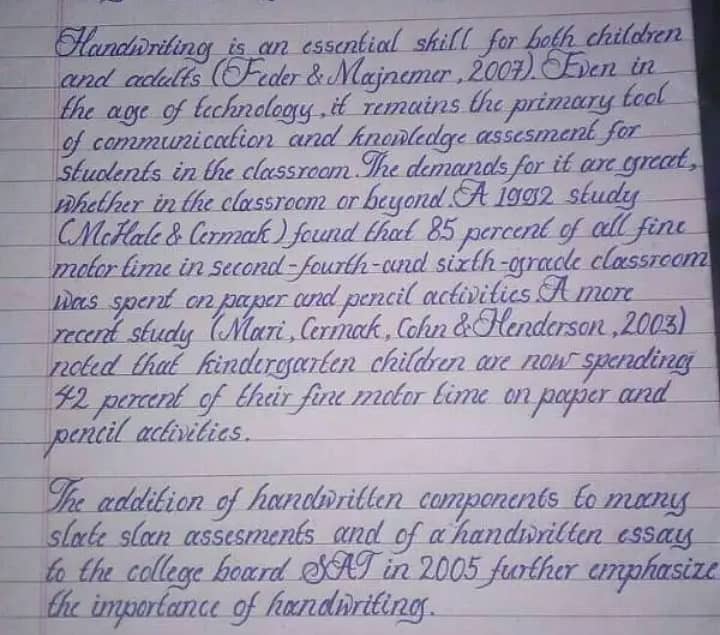 Handwriting is an essential skill for both children
and adults (Feder & Majnemer, 2007). Even in
the age of technology, it remains the primary tool
of communication and knowledge assesment for
students in the classroom. The demands for it are great,
whether in the classroom or beyond. A 1992 study
(McHale & Cermak) found that 85 percent of all fine
motor time in second-fourth-and sixth-grade classroom
was spent on paper and pencil activities. A more
recent study (Mari, Cermak, Cohn & Henderson, 2003)
noted that kindergarten children are now spending
42 percent of their fine motor time on paper and
pencil activities.
The addition of handwritten components to many
slate slan assesments and of a handwritten essay
to the college board SAT in 2005 further emphasize
the importance of handwriting.